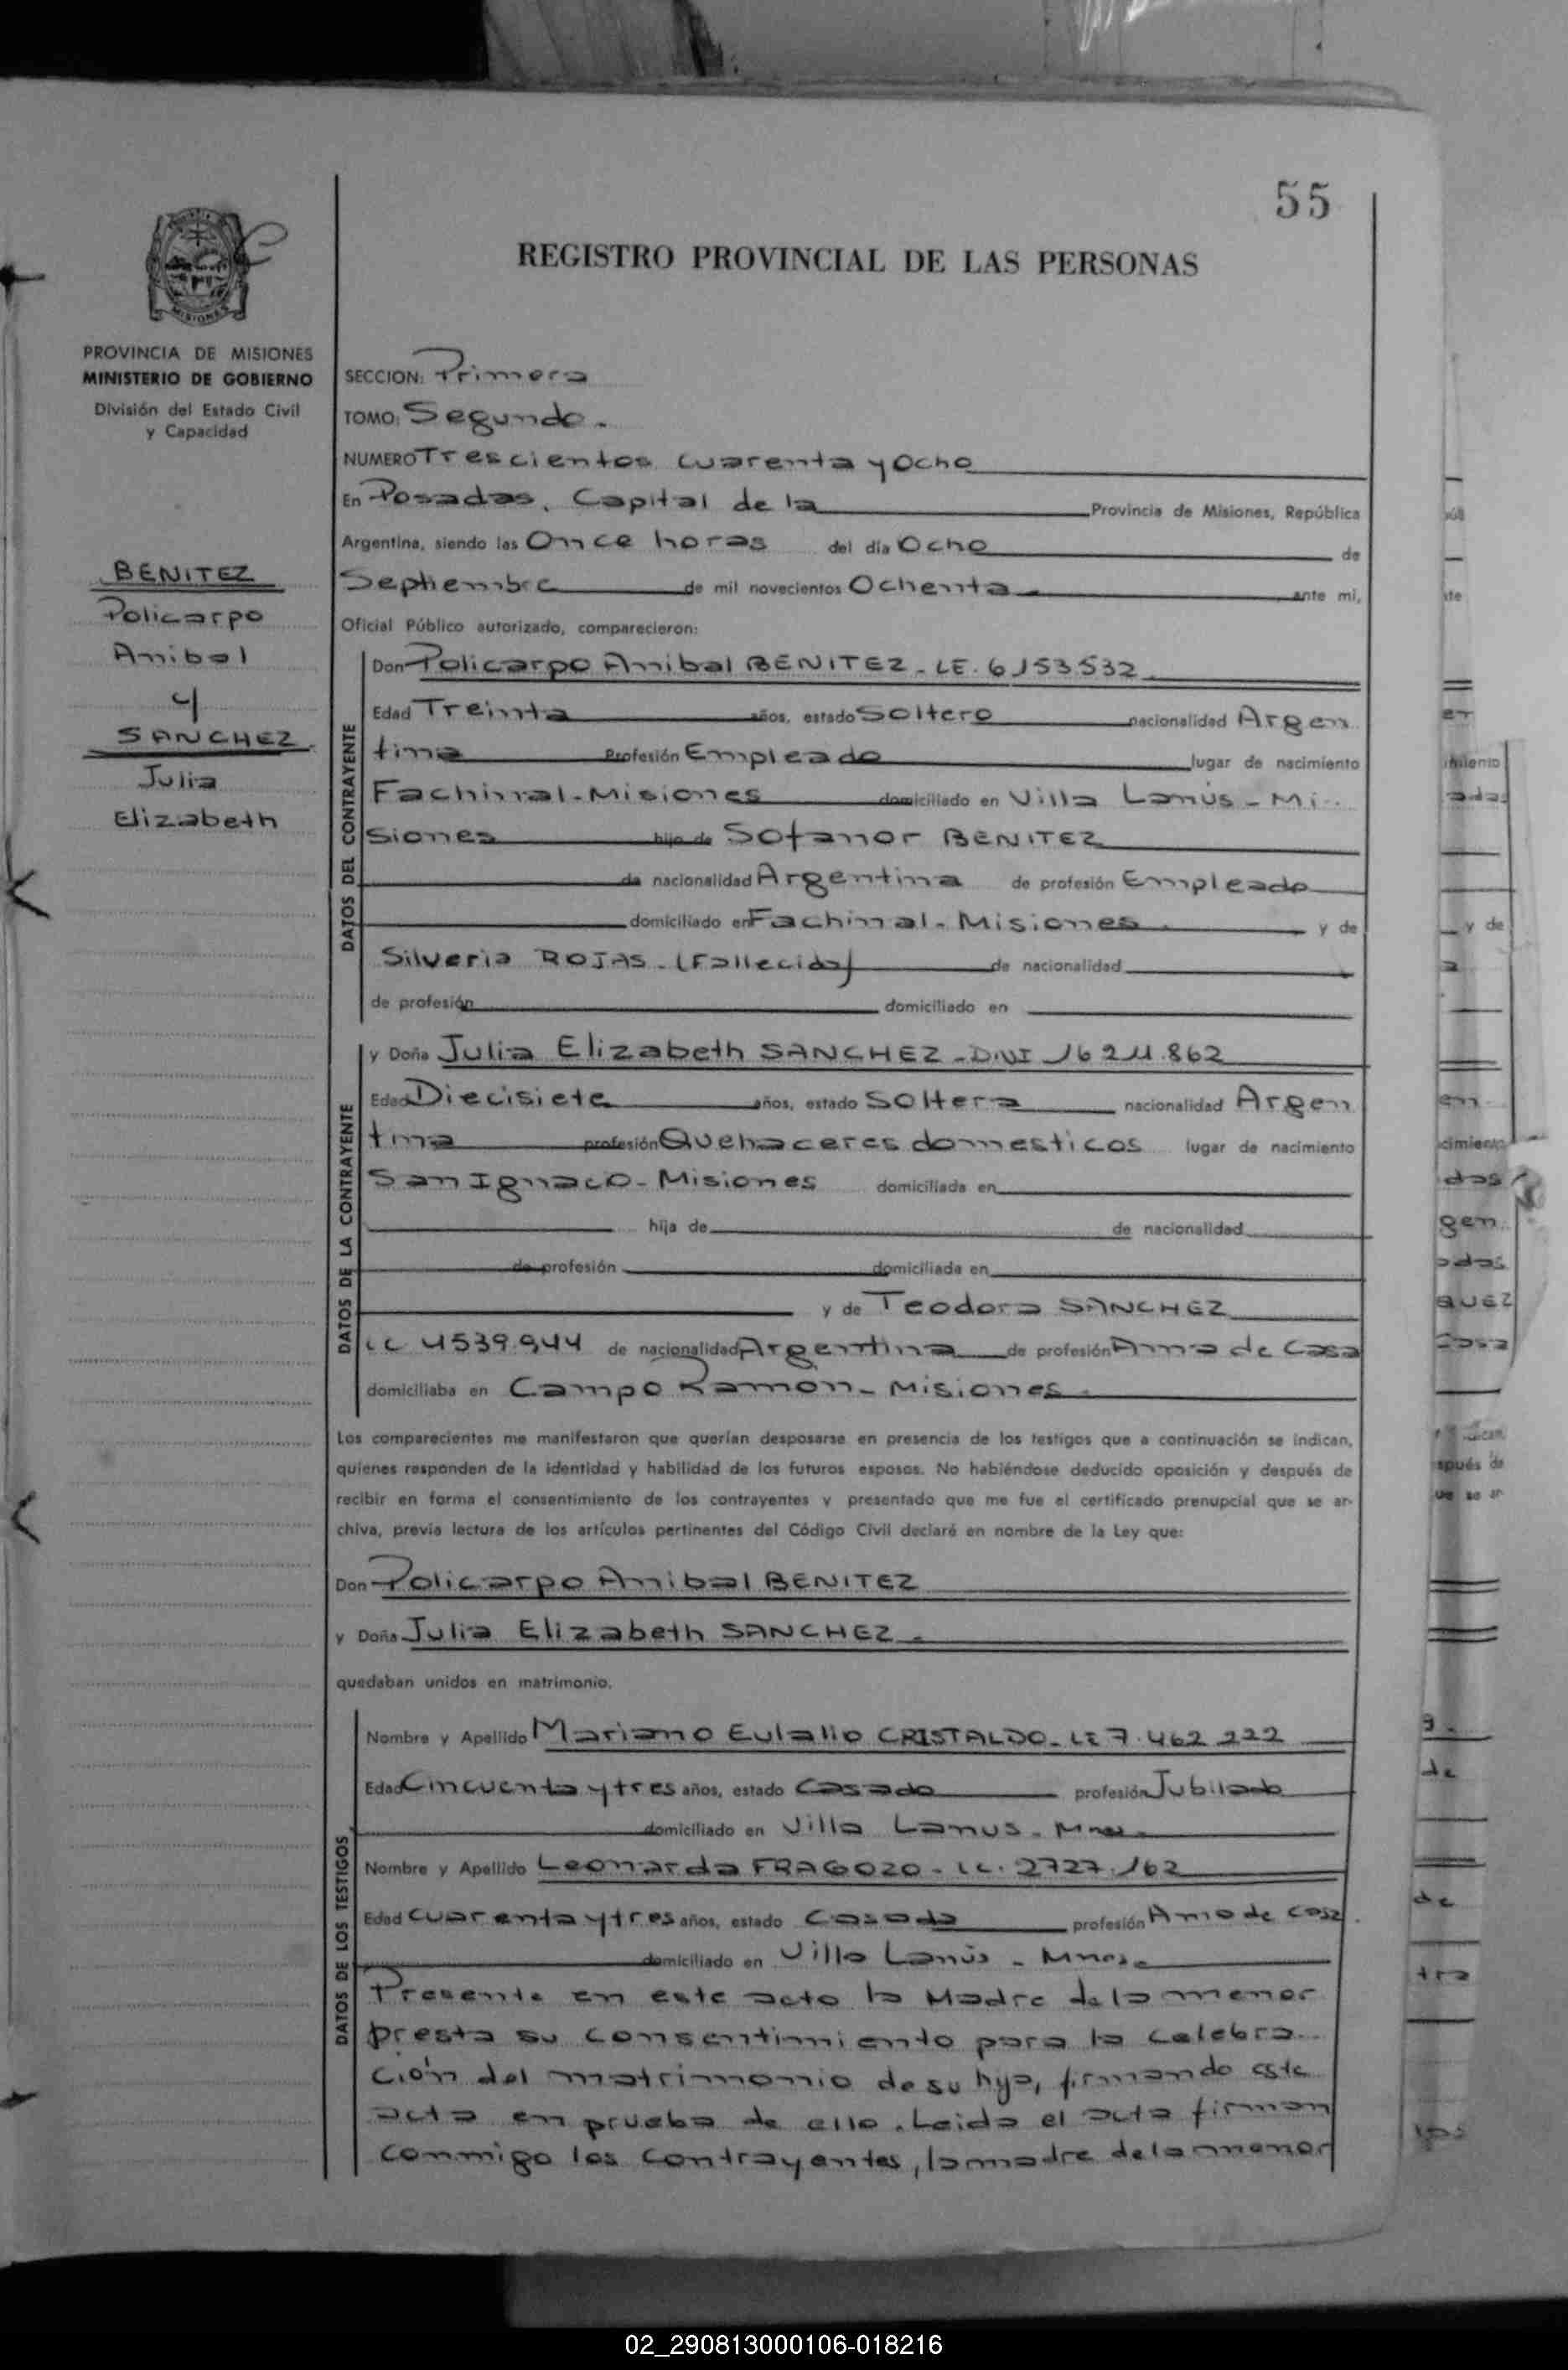 55
REGISTRO PROVINCIAL DE LAS PERSONAS
MISIONES
PROVINCIA DE MISIONES
MINISTERIO DE GOBIERNO
División del Estado Civil
y Capacidad
BENITEZ
Policarpo
Anibal
y
SANCHEZ
Julia
Elizabeth
SECCION: Primera
TOMO: Segundo.
NUMERO Trescientos cuarenta y Ocho
En Posadas, Capital de la Provincia de Misiones, República
Argentina, siendo las Once horas del día Ocho de
Septiembre de mil novecientos Ochenta. ante mí,
Oficial Público autorizado, comparecieron:
DATOS DEL CONTRAYENTE
Don Policarpo Anibal BENITEZ - LE. 6153532
Edad Treinta años, estado Soltero nacionalidad Argen
tina Profesión Empleado lugar de nacimiento
Fachinal - Misiones domiciliado en Villa Lanús - Mi-
siones hijo de Sofanor BENITEZ
de nacionalidad Argentina de profesión Empleado
domiciliado en Fachinal - Misiones. y de
Silveria ROJAS - (Fallecida) de nacionalidad
de profesión domiciliado en
DATOS DE LA CONTRAYENTE
y Doña Julia Elizabeth SANCHEZ - DNI 16 211.862
Edad Diecisiete años, estado Soltera nacionalidad Argen
tina profesión Quehaceres domesticos lugar de nacimiento
San Ignaco - Misiones domiciliada en
hija de de nacionalidad
de profesión domiciliada en
y de Teodora SANCHEZ
LC 4539.944 de nacionalidad Argentina de profesión Ama de Casa
domiciliaba en Campo Ramon - Misiones.
Los comparecientes me manifestaron que querían desposarse en presencia de los testigos que a continuación se indican,
quienes responden de la identidad y habilidad de los futuros esposos. No habiéndose deducido oposición y después de
recibir en forma el consentimiento de los contrayentes y presentado que me fue el certificado prenupcial que se ar-
chiva, previa lectura de los artículos pertinentes del Código Civil declaré en nombre de la Ley que:
Don Policarpo Anibal BENITEZ
y Doña Julia Elizabeth SANCHEZ.
quedaban unidos en matrimonio.
DATOS DE LOS TESTIGOS
Nombre y Apellido Mariano Eulalio CRISTALDO - LE 7.462 222
Edad Cincuenta y tres años, estado Casado profesión Jubilado
domiciliado en Villa Lanus - Mnes.
Nombre y Apellido Leonarda FRAGOZO - LC. 2727.162
Edad cuarenta y tres años, estado Casada profesión Ama de casa.
domiciliado en Villa Lanús - Mnes.
Presente en este acto la Madre de la menor
presta su consentimiento para la celebra-
ción del matrimonio de su hija, firmando este
acta en prueba de ello. Leida el acta firman
conmigo los contrayentes, la madre de la menor
02_290813000106-018216